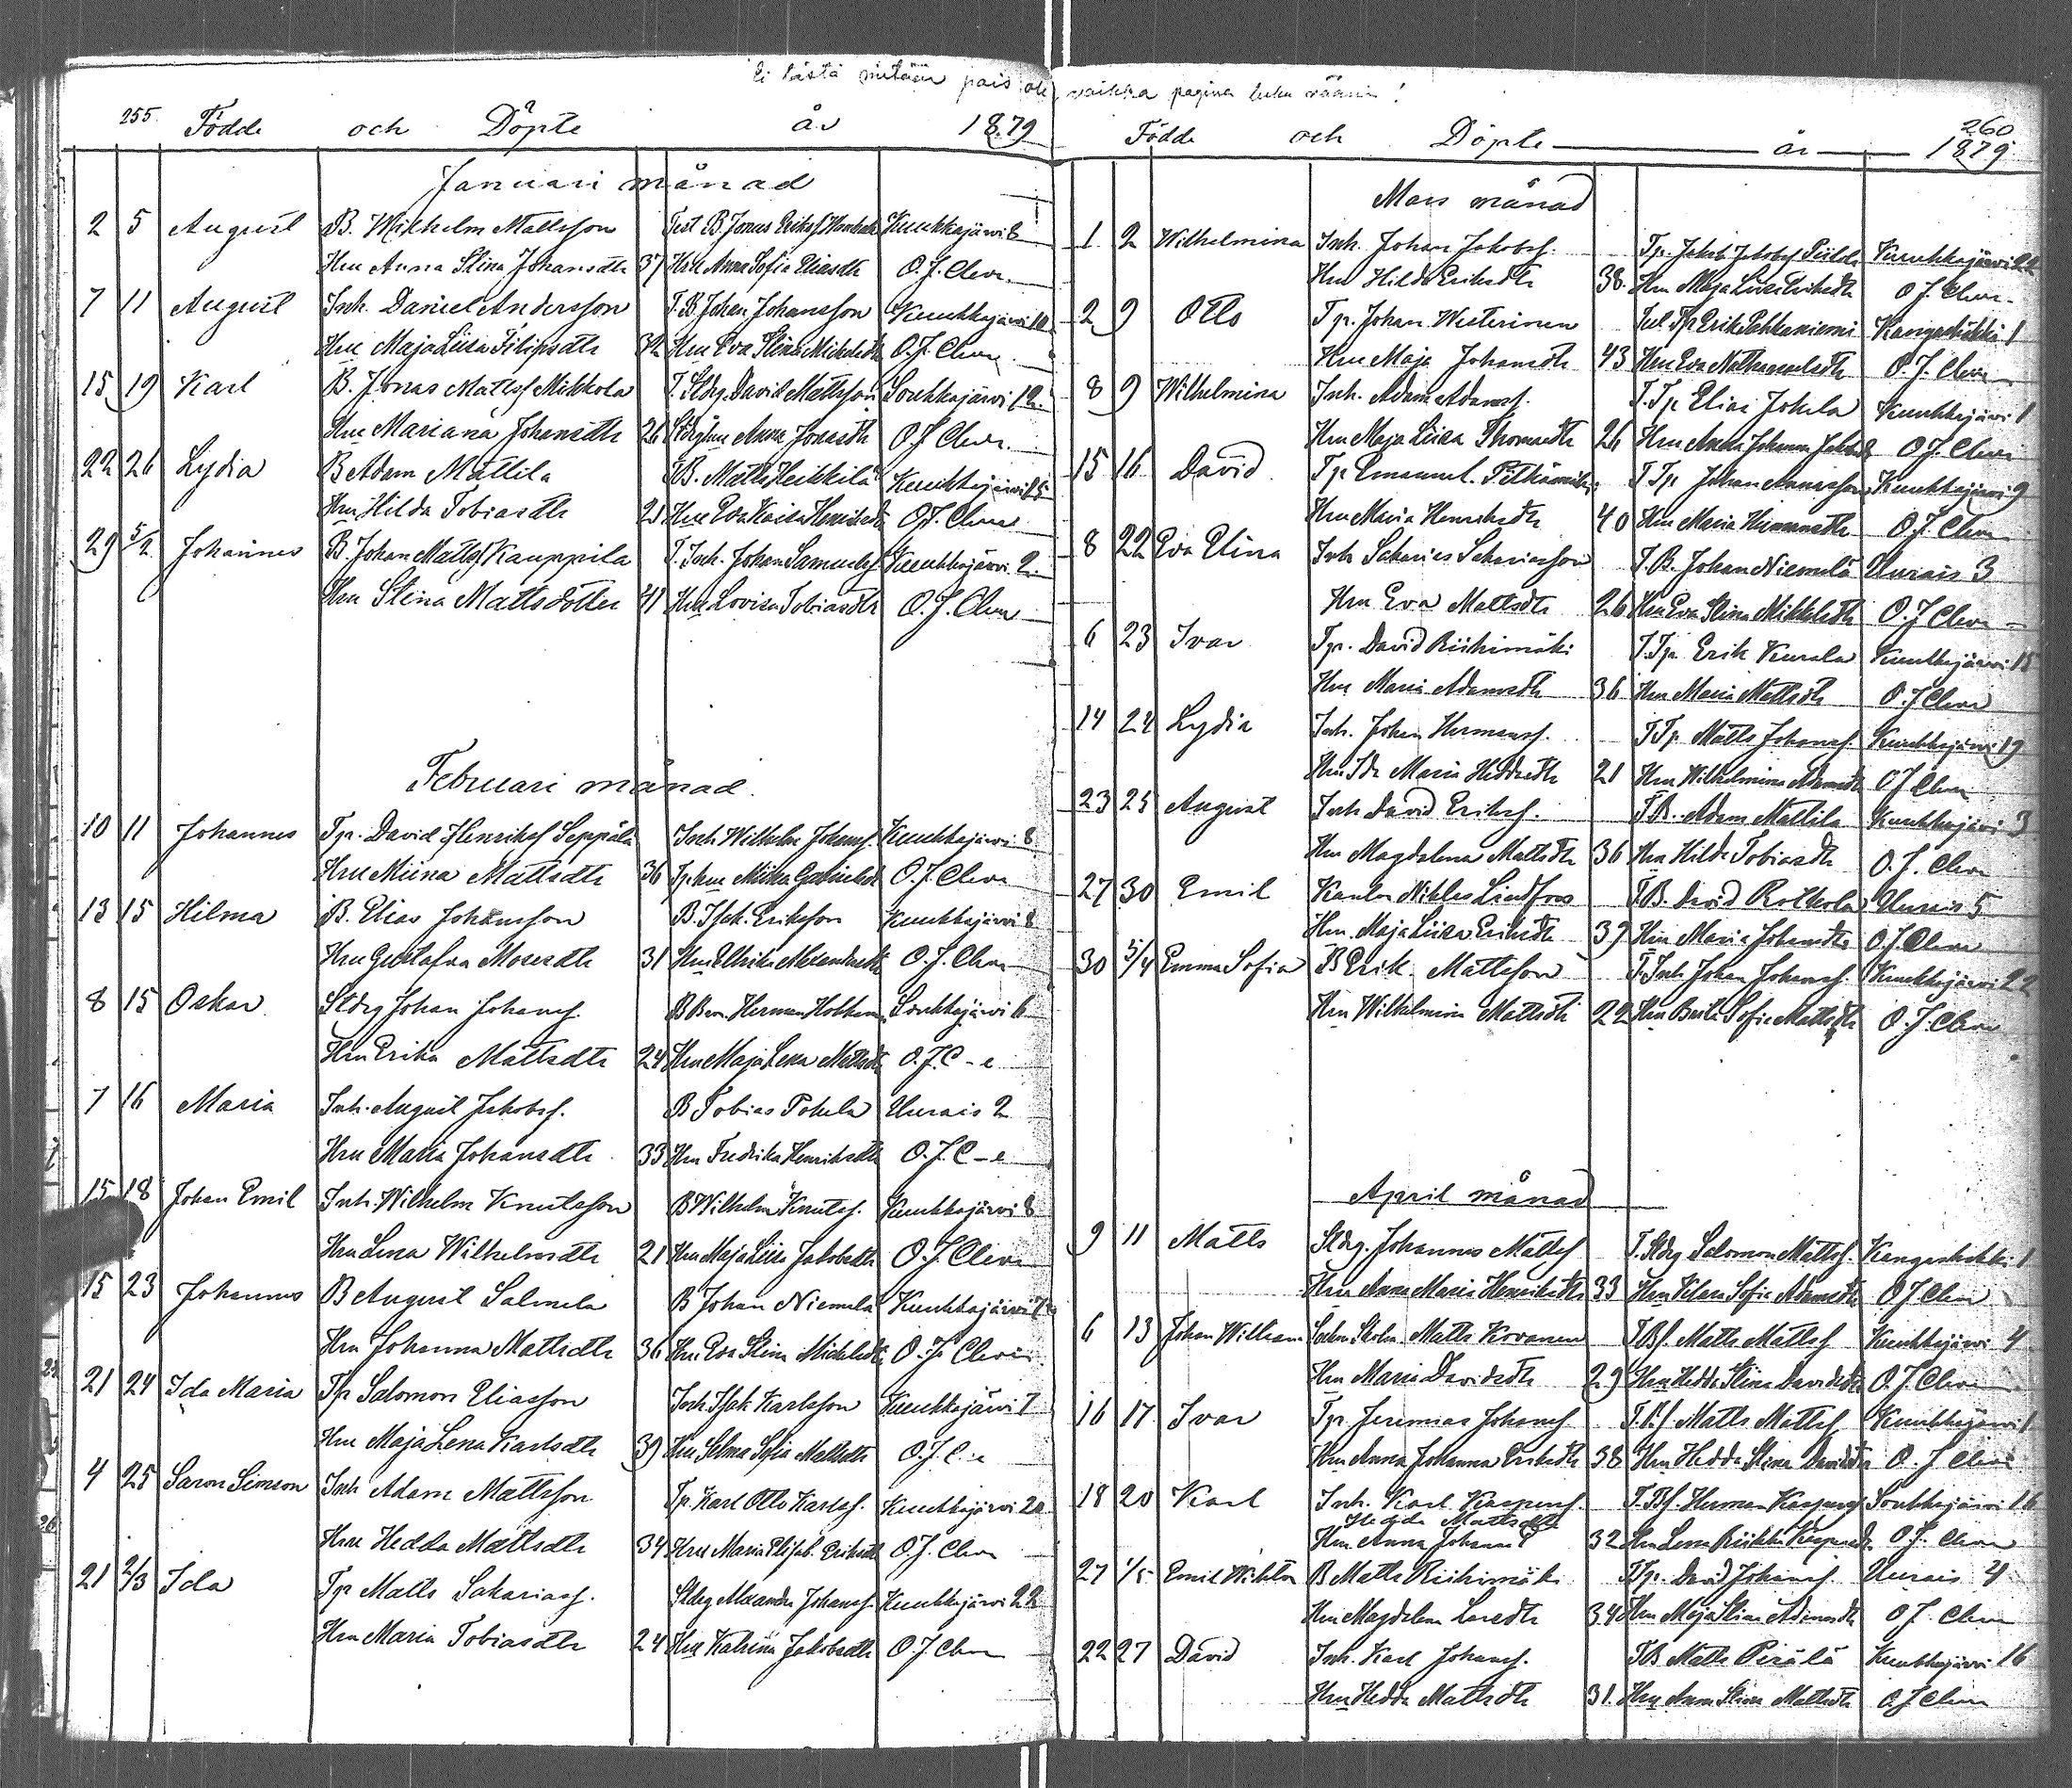 Ei tästä mitään pois ole, vaikka pagina luku väärin!
255. Födde och Döpte år 1879
Januari månad
2 5 August B. Wilhelm Mattsson Test B. Jonas Eriksf. Kuukkajärvi 8
Hru Anna Stina Johansdtr 37 Hru Anna Sofia Eliasdtr O. J. Cleve.
7 11 August Inh. Daniel Andersson T. B. Johan Johansson Kuukkajärvi 10
Hru Maja Liisa Filipsdtr 32 Hru Eva Stina Mickelsdtr O. J. Cleve
15 19 Karl B. Jonas Mattsf Mikkola T. Stdrg. David Mattsson Soukkajärvi 12.
Hru Mariana Johansdtr 26 Stdrghru Anna Jonasdtr O. J. Cleve.
22 26 Lydia B Adam Mattila T B. Matts Heikkilä Kuukkajärvi 15
Hru Hilda Tobiasdtr 21 Hru Eva Kaisa Henriksdtr O. J. Cleve
29 5/2 Johannes B. Johan Mattsf Kauppila T. Inh. Johan Samuelsf. Kuukkajärvi 2.
Hru Stina Mattsdotter 41 Hru Lovisa Tobiasdtr O. J. Cleve
Februari månad.
10 11 Johannes Tp. David Henriksf Seppälä Inh Wilhelm Johansf. Kuukkajärvi 8
Hru Miina Mattsdtr 36 Tphru Miina Gabrielsdr O. J. Cleve
13 15 Hilma B. Elias Johansson B. Isak Eriksson Kuukkajärvi 8
Hru Gustafva Mosesdtr 31 Hru Ulrika Alexandersdtr O. J. Cleve
8 15 Oskar Stdrg Johan Johansf. B Herman Soukkajärvi 6
Hru Erika Mattsdtr 24 Hru Maja Lena Mattsdtr O. J. C-e
7 16 Maria Inh. August Jakobsf. B Tobias Pokela Uurais 2
Hru Maria Johansdtr 33 Hru Fredrika Henriksdtr O. J. C-e
15 18 Johan Emil Inh. Wilhelm Knutsson B Wilhelm Knutsf. Kuukkajärvi 8
Hru Lena Wilhelmsdtr 21 Hru Maja Liisa Jakobsdtr O. J. Cleve
15 23 Johannes B August Salmela B Johan Niemelä Kuukkajärvi
Hru Johanna Mattsdtr 36 Hru Eva Stina Mickelsdtr O. J. Cleve
21 24 Ida Maria Tp Salomon Eliasson Inh Isak Karlsson Kuukkajärvi 7
Hru Maja Lena Karlsdtr 39 Hru Selma Sofia Mattsdtr O. J. C-e
4 25 Saron Simson Inh Adam Mattsson Tp. Karl Otto Karlsf. Kuukkajärvi 20
Hru Hedda Mattsdtr 34 Hru Maria Elisab. Eriksdtr O. J. Cleve
21 2/3 Ida Tp Matts Sakariasf. Stdrg Alexander Johansf. Kuukkajärvi 22
Hru Maria Tobiasdtr 24 Hru Katrina Jakobsdtr O. J. Cleve
260
Födde och Döpte år 1879
Mars månad
1 2 Wilhelmina Inh. Johan Jakobsf. Tp. Jakob Jakobsf Kuukkajärvi 22
Hru Hilda Eriksdtr 38. Hru Maja Liisa Eriksdtr O. J. Cleve.
2 9 Otto Tp. Johan Westerinen Tp Erik Pohkaniemi Kangashäkki 1
Hru Maja Johansdtr 43 Hru Eva Nathanaelsdtr O. J. Cleve
8 9 Wilhelmina Inh. Adam Adamsf. T. Tp Elias Jokela Kuukkajärvi 1
Hru Maja Liisa Thomasdtr 26 Hru Anna Johanna O J. Cleve
15 16 David Tp Emanuel Pitkämäki T Tp Johan Kuukkajärvi 9
Hru Maria Henriksdtr 40 Hru Maria Hermansdtr O. J. Cleve
8 22 Eva Elina Inh Sakarias Sakariasson T. B. Johan Niemelä Uurais 3
Hru Eva Mattsdtr 26 Hru Eva Stina Mikkelsdtr O. J Cleve
6 23 Ivar Tp. David Riihimäki T. Tp. Erik Keurala Kuukkajärvi 15
Hru Maria Adamsdtr 36 Hru Maria Mattsdtr O. J Cleve
14 24 Lydia Inh. Johan Hermansf. T Tp Matts Johansf. Kuukkajärvi 19
Hru Ida Maria 21 Hru Wilhelmina Adamsdtr O J Cleve
23 25 August Inh David Eriksf. T B. Adam Mattila Kuukkajärvi 3
Hru Magdalena Mattsdtr 36 Hru Hilda Tobiasdtr O. J. Cleve
27 30 Emil Kantor Niklas Lindfors T B. David Uurais 5
Hru Maja Liisa Eriksdtr 39 Hru Maria Johansdtr O. J. Cleve
30 5/4 Emma Sofia B Erik Mattsson T. Inh Johan Johansf. Kuukkajärvi 22
Hru Wilhelmina Mattsdtr 22 Hru Sofia Mattsdtr O. J. Cleve
April månad
9 11 Matts Stdrg. Johannes Mattsf T. Stdrg Salomon Mattsf. Kangashäkki 1
Hru Anna Maria Henriksdtr 33 Hru Sofia Adamsdtr O J Cleve
6 13 Johan William Matts Kovanen T Bf. Matts Mattsf Kuukkajärvi 4
Hru Maria Davidsdtr 29 Hru Hedda Stina Davidsdtr O. J. Cleve
16 17 Ivar Tp. Jeremias Johansf T. Bf. Matts Mattsf Kuukkajärvi 1
Hru Anna Johanna Eriksdtr 38 Hru Hedda Stina Davidsdtr O. J Cleve
18 20 Karl Inh. Karl Kaspersf. T. Bf. Herman Kaspersf Soukkajärvi 16
Hedda Mattsdtr
Hru Anna Johansd 32 Hru Lena Riikka Kaspersdtr O. J. Cleve
27 1/5 Emil Wiktor B Matts Riihimäki T Tp. David Johansf. Uurais 4
Hru Magdalena 34 Hru Maja Stina Adamsdtr O J. Cleve
22 27 David Inh. Karl Johansf. T B Matts Pirälä Kuukkajärvi 16
Hru Hedda Mattsdtr 31. Hru Anna Stina Mattsdtr O. J Cleve